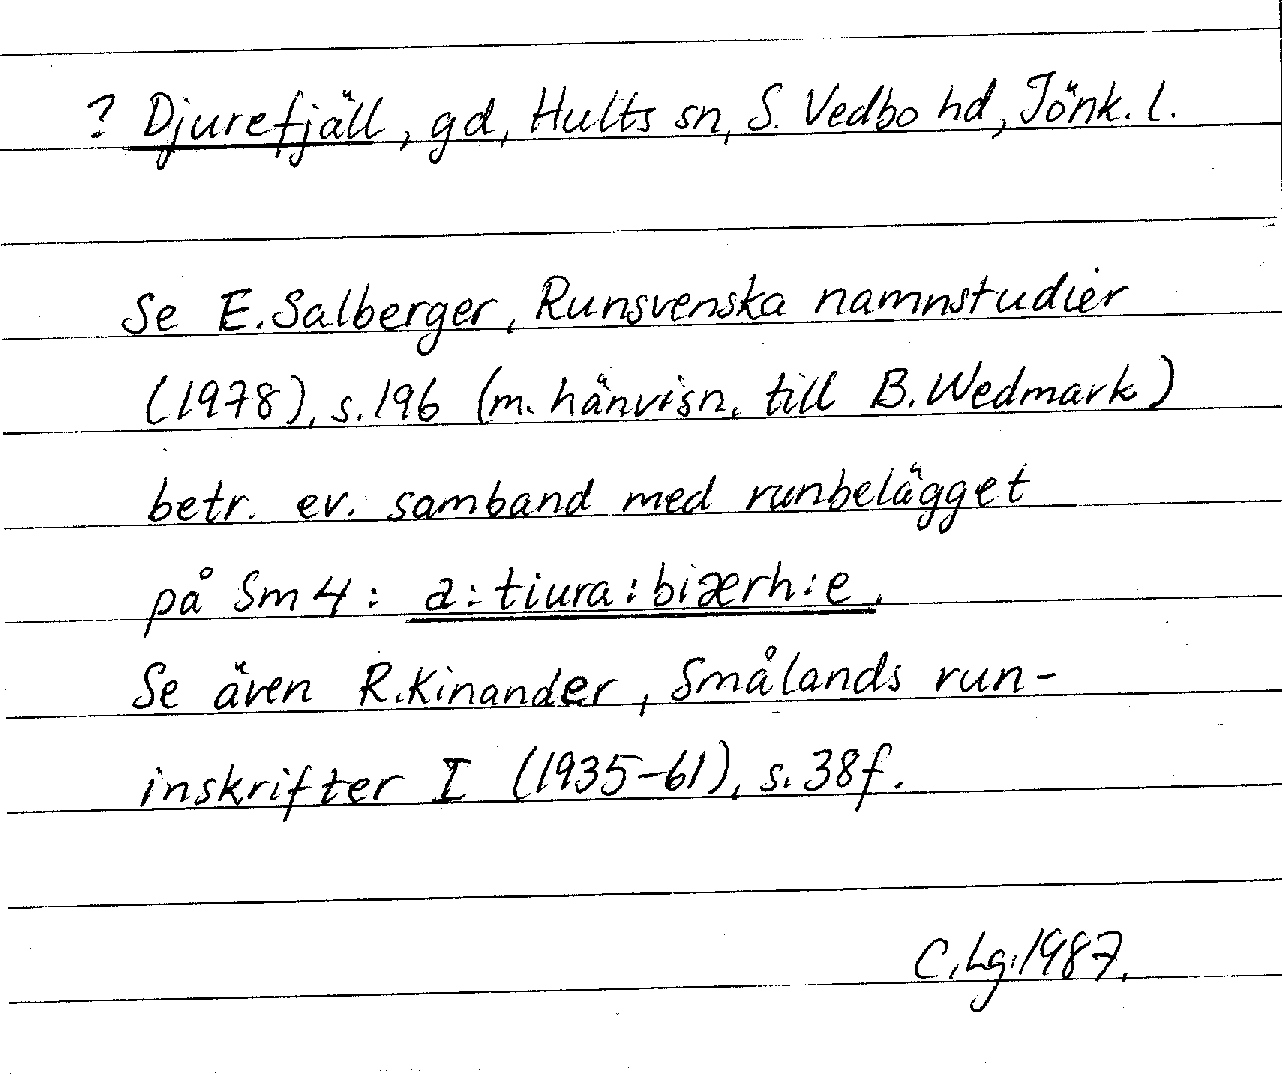 ? Djurefjäll, gd, Hults sn, S. Vedbo hd, Jönk. l.
Se E. Salberger, Runsvenska namnstudier
(1978), s. 196 (m. hänvisn. till B. Wedmark)
betr. ev. samband med runbelägget
på Sm 4: a:tiura:biærh:e.
Se även R. Kinander, Smålands run-
inskrifter I (1935-61), s. 38f.
C. Lg. 1987.